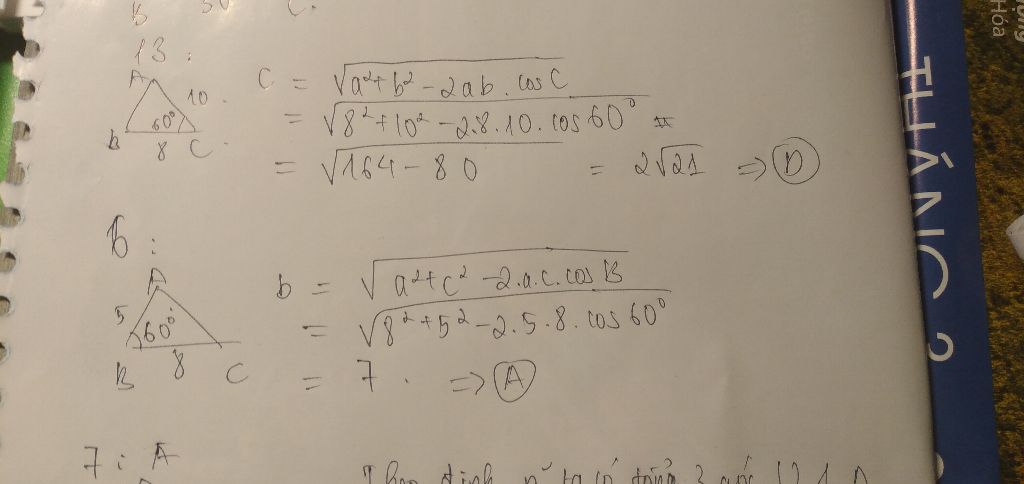 B 30 C.
13 :
A
10
60°
B 8 C
C = √(a²+b² - 2ab . cos C)
= √(8²+10² - 2.8.10. cos 60°)
= √(164 - 80) = 2√21 => D
6 :
A
5
60°
B 8 C
b = √(a²+c² - 2.a.c. cos B)
= √(8²+5² - 2.5.8. cos 60°)
= 7 . => A
7 : A
ta có tổng 3 góc
THÁNG 2
Hòa